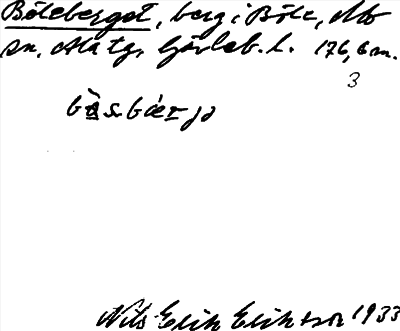 Böleberget, berg i Böle, Mo
sn, Ala tg, Gävleb. l. 176,6 m.
3
Nils Erik Eriksson 1933